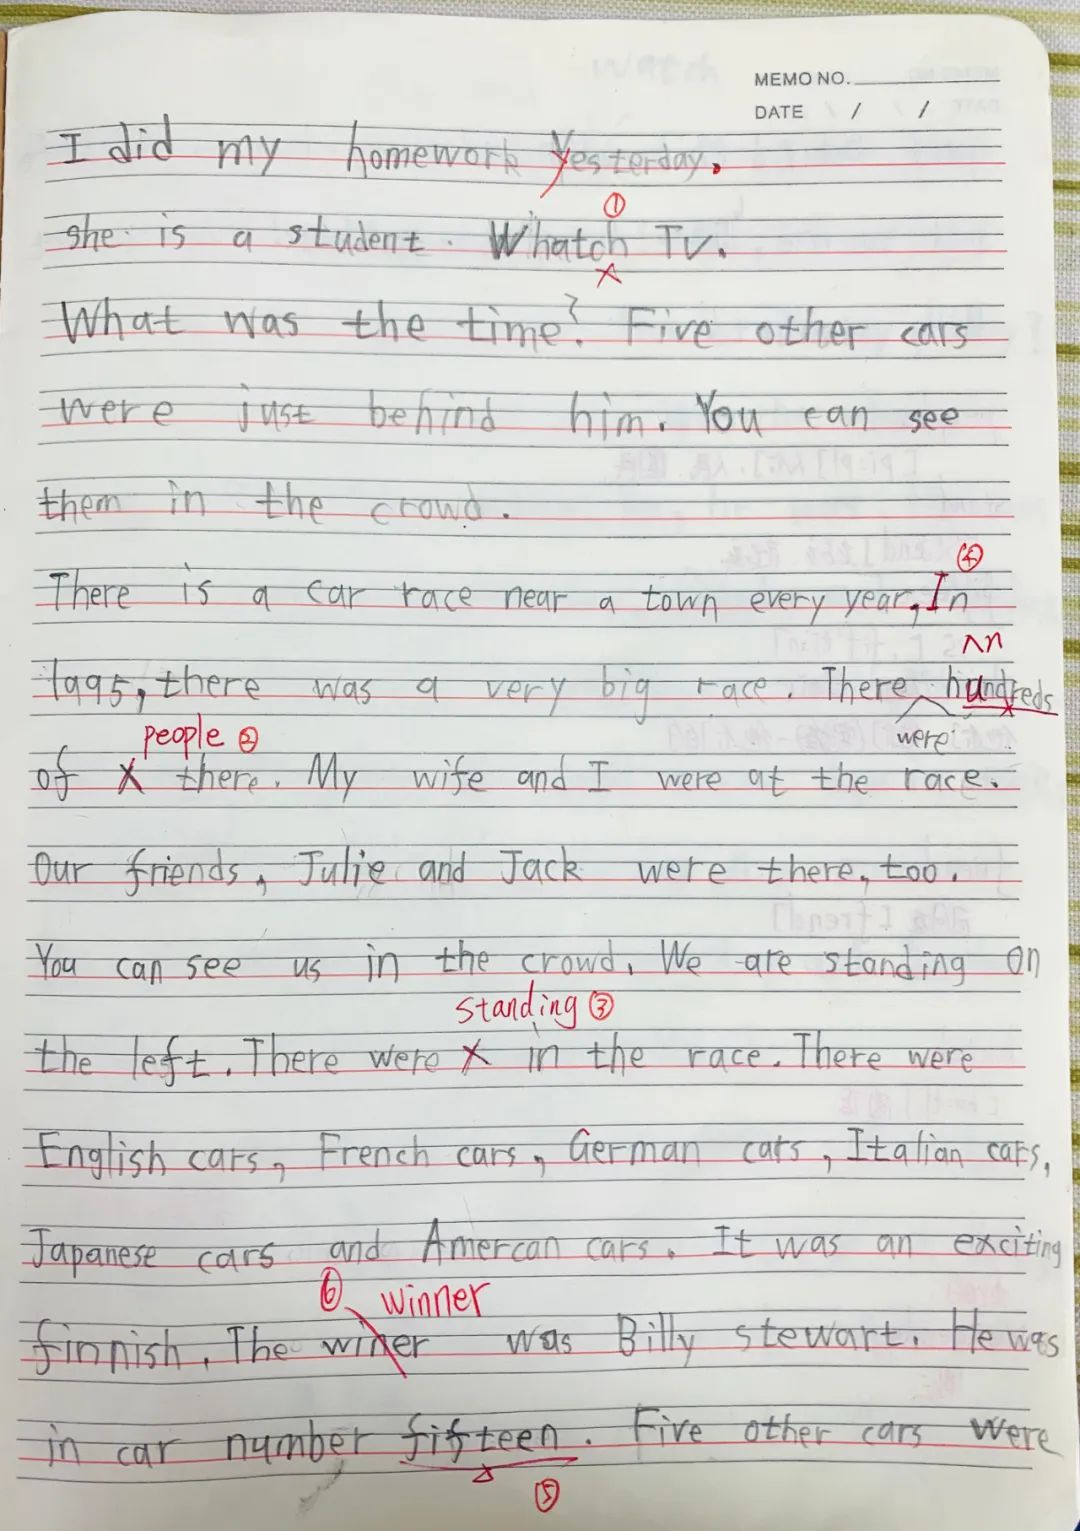 MEMO NO.
DATE / /
I did my homework yesterday.
①
she is a student. Whatch TV.
What was the time? Five other cars
were just behind him. You can see
them in the crowd.
④
There is a car race near a town every year, In
1995, there was a very big race. There hundreds
were
people ②
of X there. My wife and I were at the race.
Our friends, Julie and Jack were there, too.
You can see us in the crowd. We are standing on
standing ③
the left. There were X in the race. There were
English cars, French cars, German cars, Italian cars,
Japanese cars and Amercan cars. It was an exciting
⑥ winner
finnish. The winer was Billy stewart. He was
in car number fifteen. Five other cars were
⑤